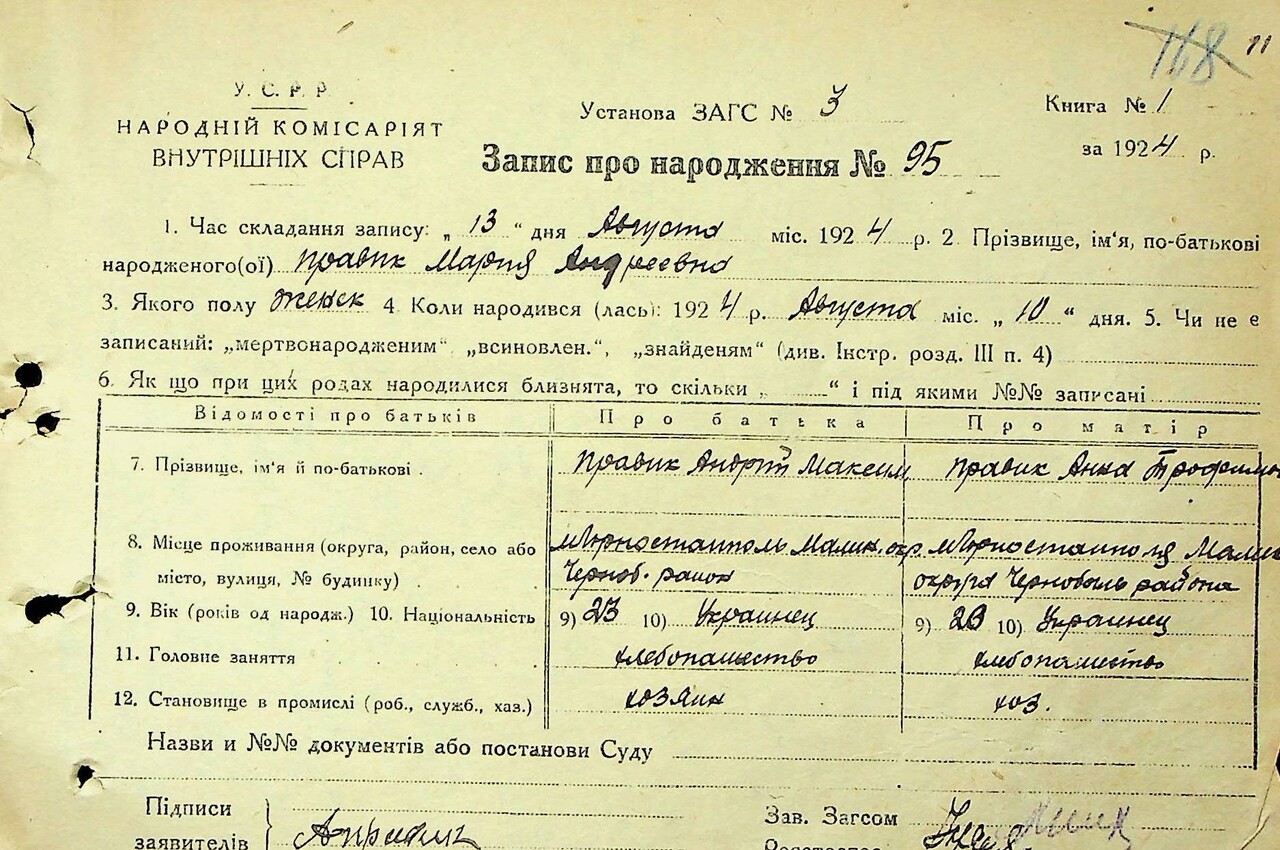 118 11
У. С. Р. Р.
НАРОДНІЙ КОМІСАРІЯТ
ВНУТРІШНІХ СПРАВ
Установа ЗАГС № 3
Запис про народження № 95
Книга № 1
за 1924 р.
1. Час складання запису: „ 13 “ дня Августа міс. 1924 р. 2. Прізвище, ім'я, по-батькові
народженого(ої) Правик Мария Андреевна
3. Якого полу женск 4. Коли народився (лась): 1924 р. Августа міс. „ 10 “ дня. 5. Чи не є
записаний: „мертвонародженим“ „всиновлен.“, „знайденям“ (див. Інстр. розд. III п. 4)
6. Як що при цих родах народилися близнята, то скільки „ “ і під якими №№ записані
Відомості про батьків Про батька Про матір
7. Прізвище, ім'я й по-батькові . Правик Андрій Максим Правик Анна Трофимов
8. Місце проживання (округа, район, село або м Горностайполь Малин. окр. м Горностайполя Малин
місто, вулиця, № будинку) . Черноб. район округа Чернобыль района
9. Вік (років од народж.) 10. Національність 9) 23 10) Украинец 9) 20 10) Украинец
11. Головне заняття хлебопашество хлебопашество
12. Становище в промислі (роб., служб., хаз.) хозяин хоз.
Назви и №№ документів або постанови Суду
Підписи
заявителів
Зав. Загсом